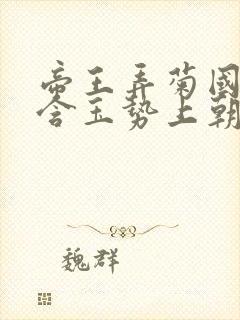 帝王弄菊國
含玉勢上朝
魏群